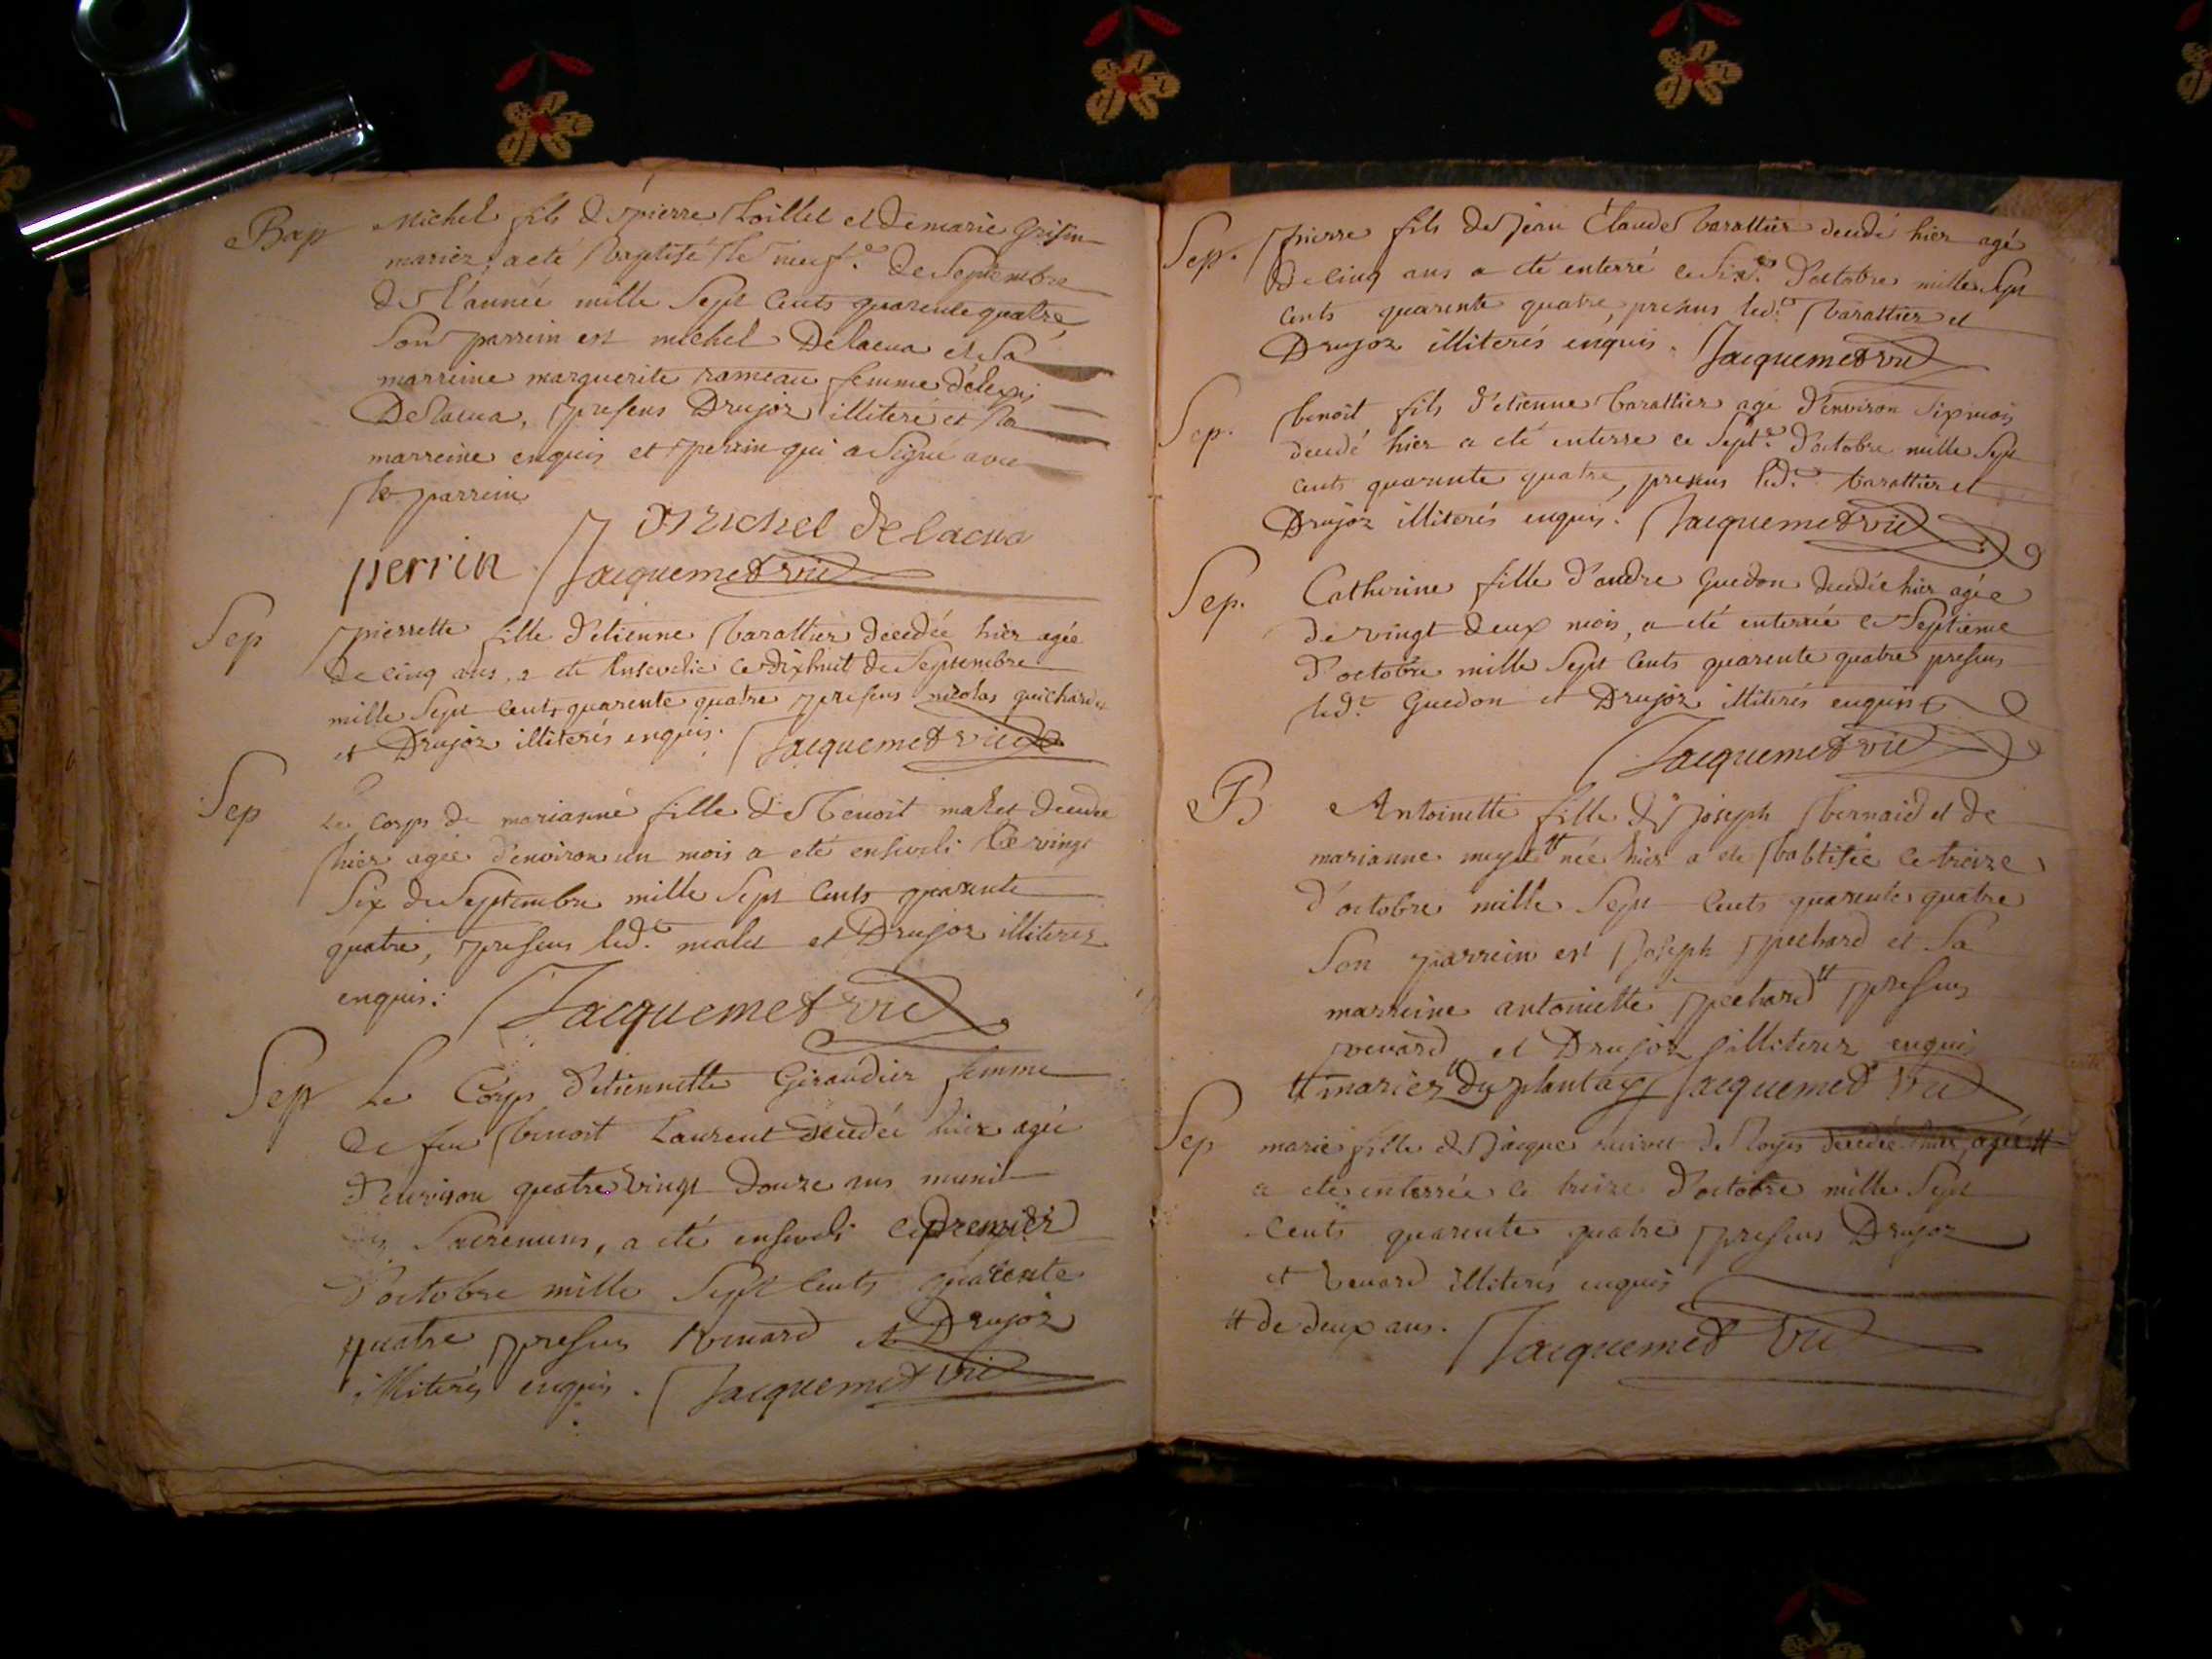 Bap Michel fils de pierre Loillet et de marie grisin
mariez a eté baptisé le neuf.e de Septembre
de l'année mille Sept Cents quarente quatre
Son parrein est michel Delacua et Sa
marreine marguerite rameau femme d'alexis
Delacua, presens Drujoz illiteré et la
marreine enquis et perrin qui a Signé avec
le parrein
Michel delacua
perrin Jacquemet vic
Sep pierrette fille d'etienne barattier decedée hier agée
de cinq ans, a eté Ensevelie ce dixhuit de Septembre
mille Sept Cents quarente quatre presens nicolas guichard
et Drujoz illiterés enquis. Jacquemet vic
Sep Le Corps de marianne fille de Benoit malet decedée
hier agée d'environ un mois a eté enseveli Ce vingt
Six de Septembre mille Sept Cents quarente
quatre, presens led.t malet et Drujoz illiterez
enquis. Jacquemet vic
Sep Le Corps d'etiennette Giraudier femme
de feu benoit Laurent decedée hier agée
d'environ quatre vingt douze ans munit
des Sacremens, a eté enseveli ce premier
d'octobre mille Sept Cents quarente
quatre presens Venard et Drujoz
illiterés enquis. Jacquemet vic
Sep. pierre fils de jean Claude barattier decedé hier agé
de cinq ans a eté enterré ce Six.e d'octobre mille Sept
Cents quarente quatre, presens led.t barattier et
Drujoz illiterés enquis. Jacquemet vic
Sep. benoit fils d'etienne barattier agé d'environ Six mois
decedé hier a eté enterré ce Sept.e d'octobre mille Sept
Cents quarente quatre, presens led.t barattier et
Drujoz illiterés enquis. Jacquemet vic
Sep. Catherine fille d'andre Guedon decedée hier agée
de vingt deux mois, a eté enterrée ce Septieme
d'octobre mille Sept Cents quarente quatre presens
led.t Guedon et Drujoz illiterés enquis
Jacquemet vic
B Antoinette fille de joseph bernard et de
marianne # née hier a eté babtisée ce treize
d'octobre mille Sept Cents quarente quatre
Son parrein est Joseph pechard et Sa
marreine antoinette pechard # presens
venard et Drujoz illiterez enquis
# mariez du plantay Jacquemet vic
Sep marie fille de jacque de decedée hier agée #
a eté enterrée ce treize d'octobre mille Sept
Cents quarente quatre presens Drujoz
et Venard illiterés enquis
# de deux ans. Jacquemet vic